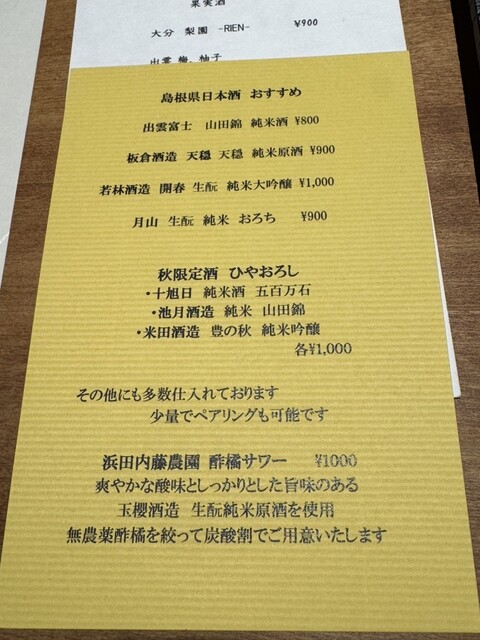 果実酒
大分 梨園 -RIEN- ¥900
出雲 梅、柚子
島根県日本酒 おすすめ
出雲富士 山田錦 純米酒 ¥800
板倉酒造 天穏 天穏 純米原酒 ¥900
若林酒造 開春 生酛 純米大吟醸 ¥1,000
月山 生酛 純米 おろち ¥900
秋限定酒 ひやおろし
・十旭日 純米酒 五百万石
・池月酒造 純米 山田錦
・米田酒造 豊の秋 純米吟醸
各¥1,000
その他にも多数仕入れております
少量でペアリングも可能です
浜田内藤農園 酢橘サワー ¥1000
爽やかな酸味としっかりとした旨味のある
玉櫻酒造 生酛純米原酒を使用
無農薬酢橘を絞って炭酸割でご用意いたします